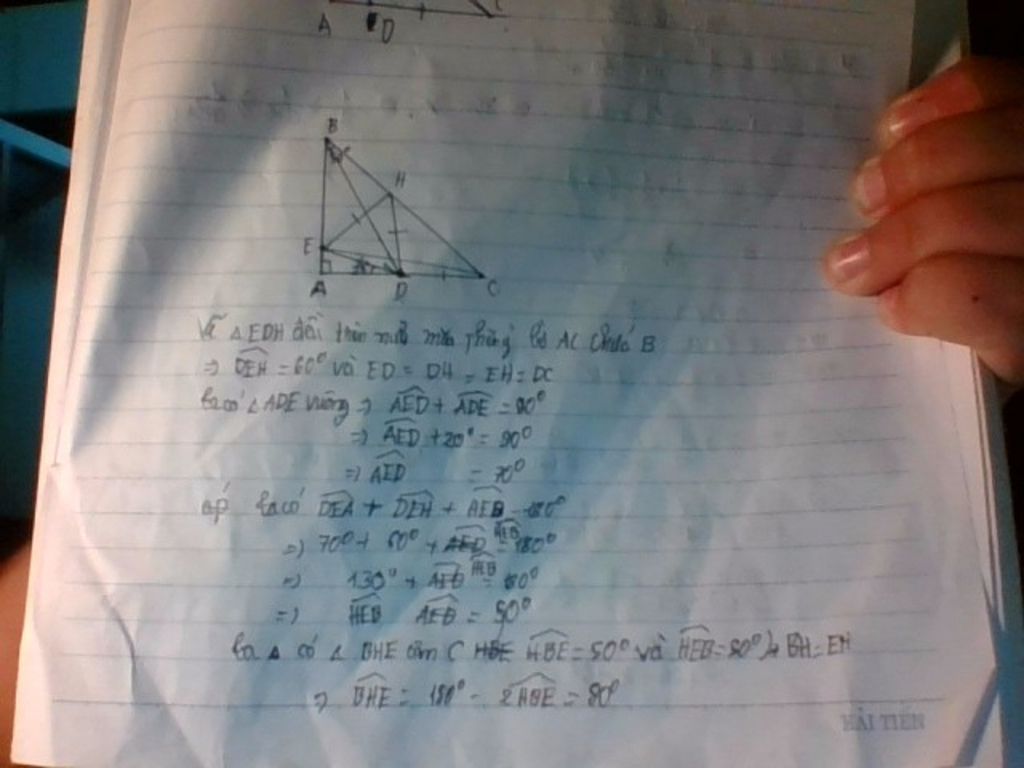 A D C
B
H
E
A D C
Vẽ △EDH đều trên nửa mặt phẳng bờ AC chứa B
=> DEH = 60° và ED = DH = EH = DC
ta có △ ADE vuông => AED + ADE = 90°
=> AED + 20° = 90°
=> AED = 70°
ta có DEA + DEH + = 180°
=> 70° + 60° + HEB = 180°
=> 130° + HEB = 180°
=> HEB = 50°
ta có △ BHE cân HBE = 50° và HEB = 50° BH = EH
=> BHE = 180° - 2HBE = 80°
HẢI TIẾN